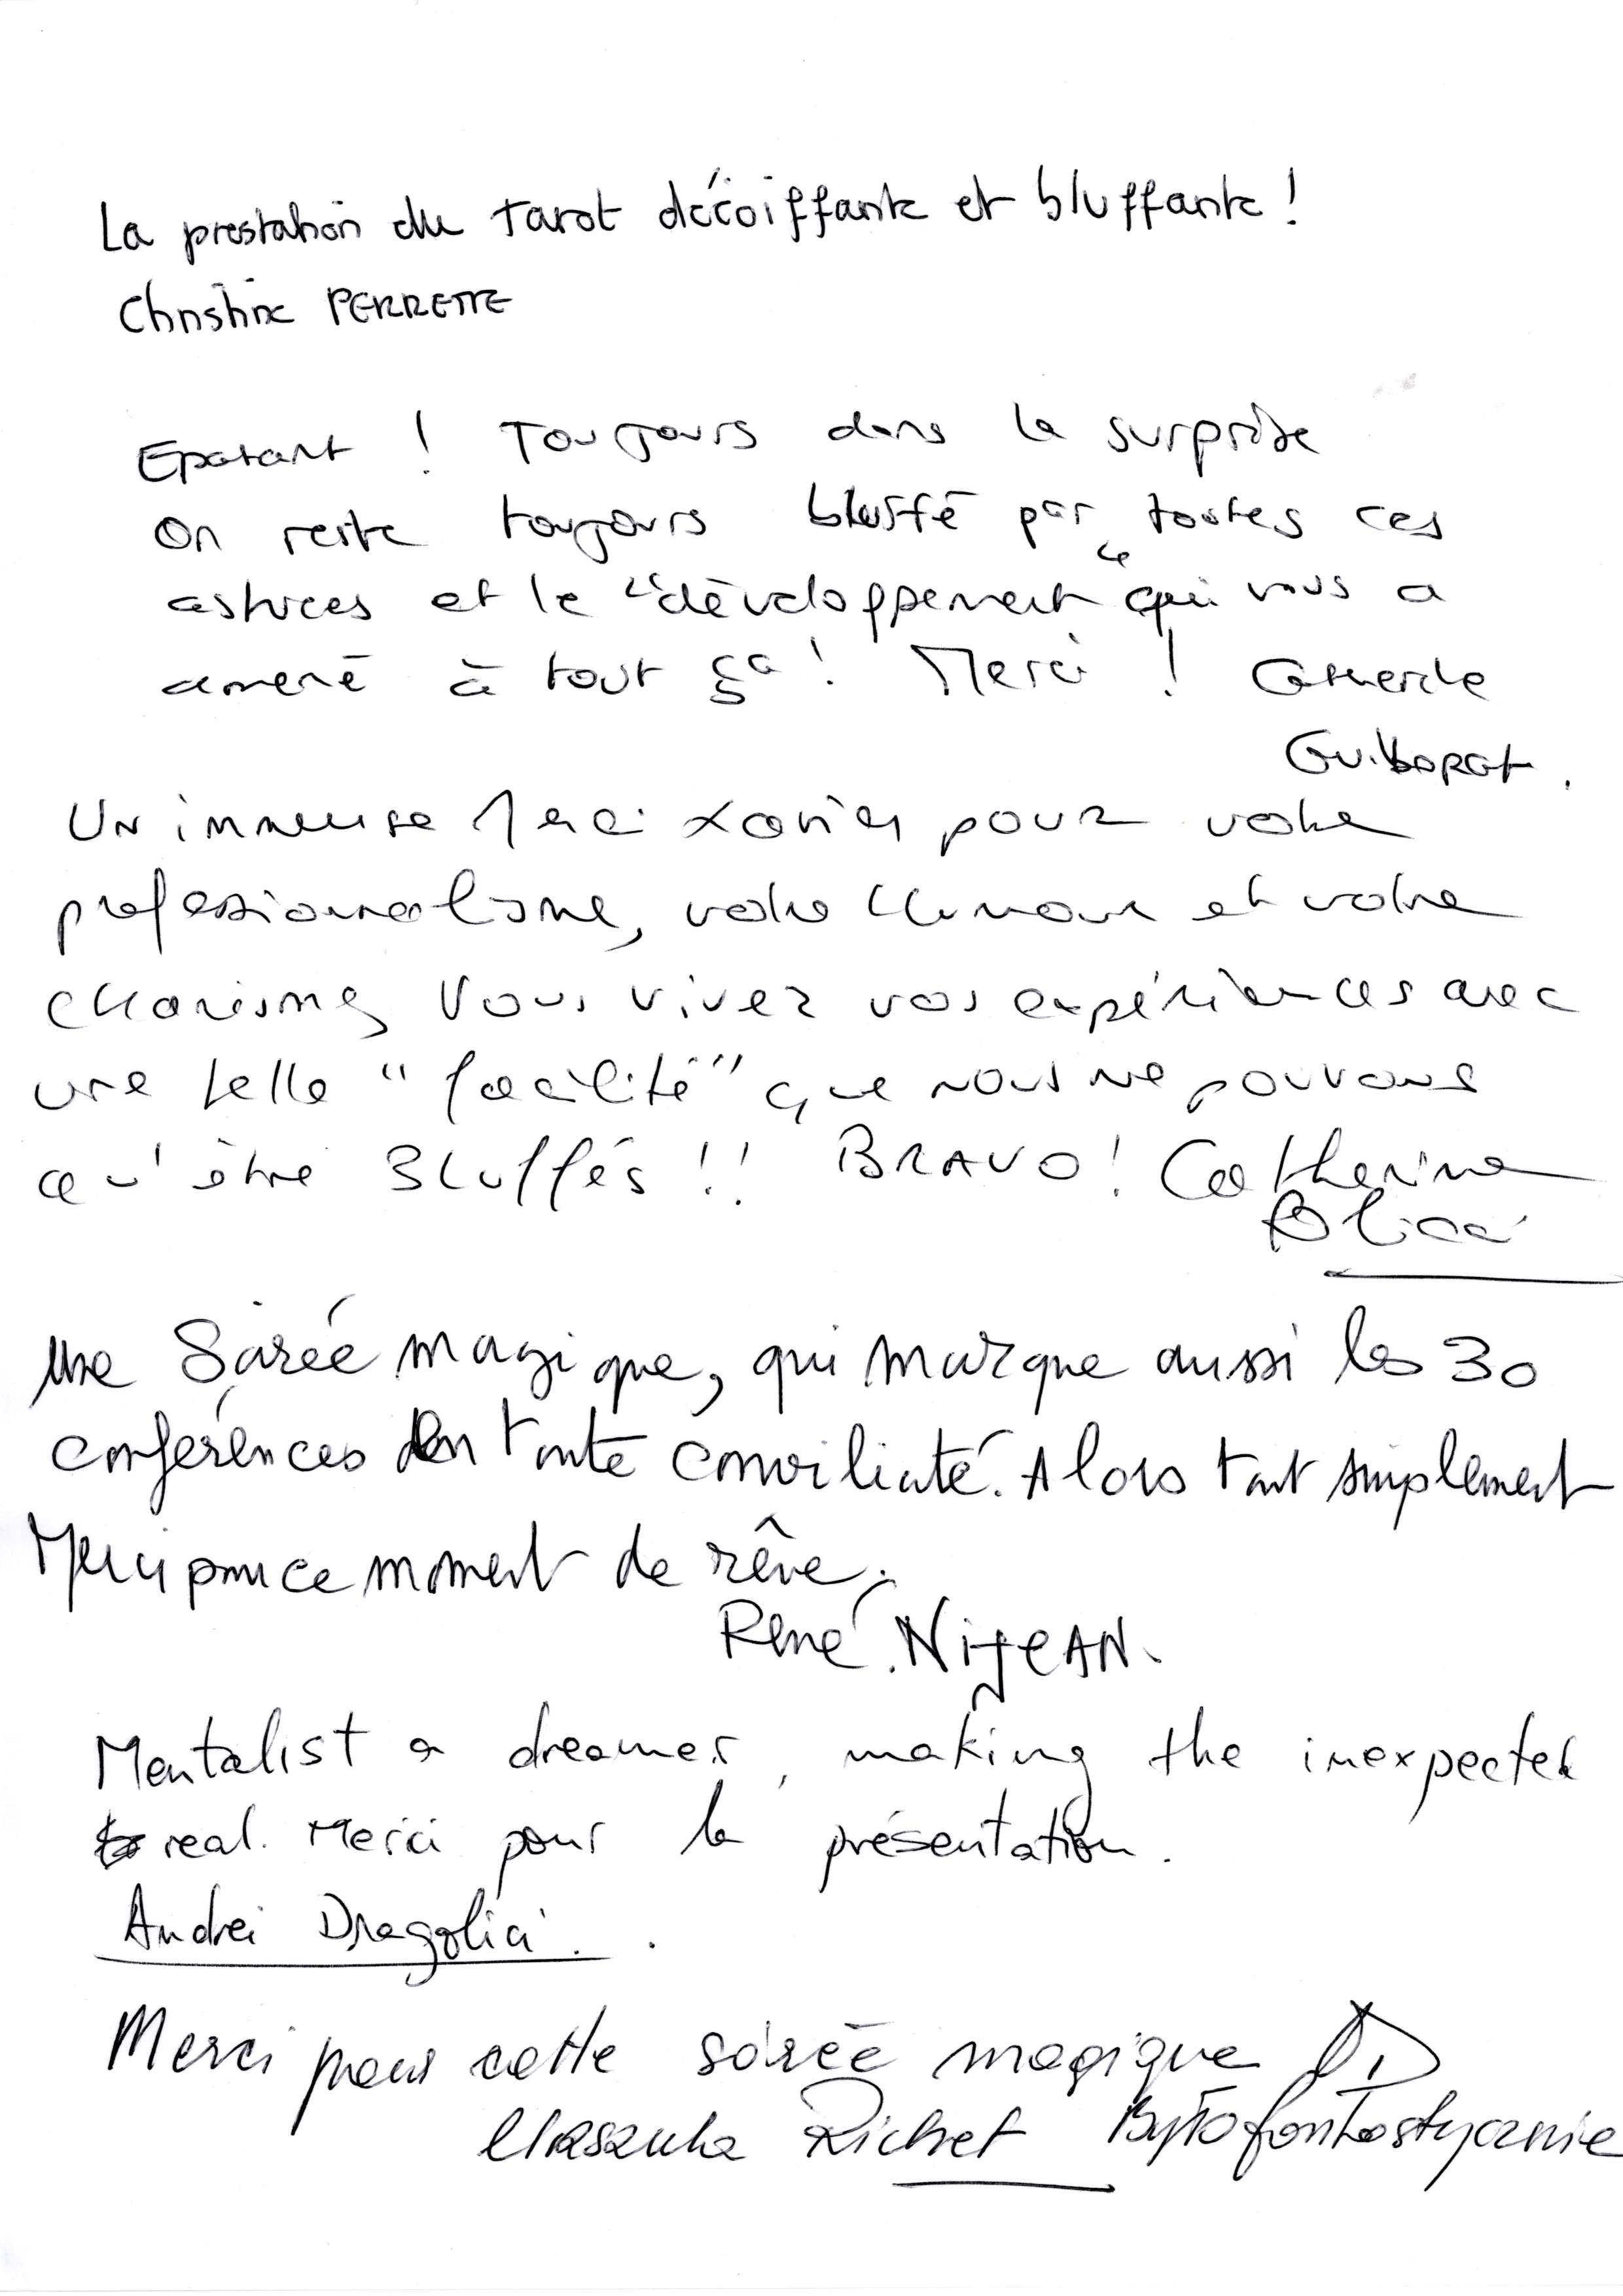 La prestation du tarot décoiffante et bluffante !
Christine PERRETTE
Epatant ! Toujours dans la surprise
On reste toujours bluffé par toutes ces
astuces et le "développement" qui vous a
amené à tout ça ! Merci ! Catherine
Un immense Merci Xavier pour votre
professionnalisme, votre humour et votre
charisme, Vous vivez vos expériences avec
une telle "facilité" que nous ne pouvons
qu'être Bluffés !! BRAVO ! Catherine
Une Soirée magique, qui marque aussi les 30
conférences en toute convivialité. Alors tout simplement
Merci pour ce moment de rêve.
René. NIJEAN.
Mentalist a dreamer, making the inexpected
real. Merci pour la présentation.
Andrei Dragolici.
Merci pour cette soirée magique
Urszula Richet Było fantastycznie